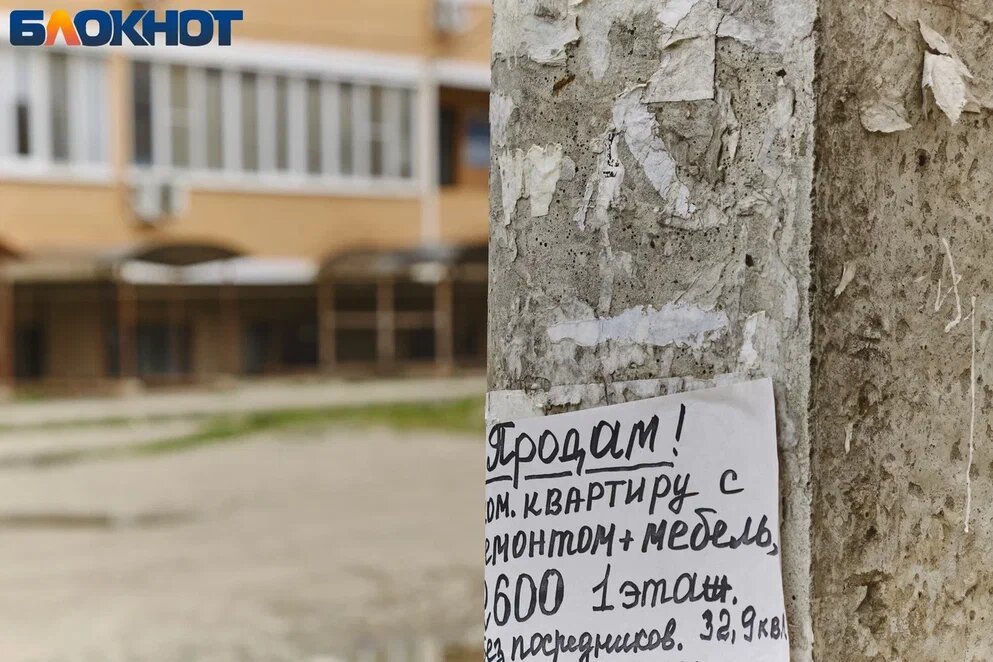 БЛОКНОТ
Продам!
ом. квартиру с
емонтом + мебель,
2600 1 этаж.
ез посредников. 32,9 кв